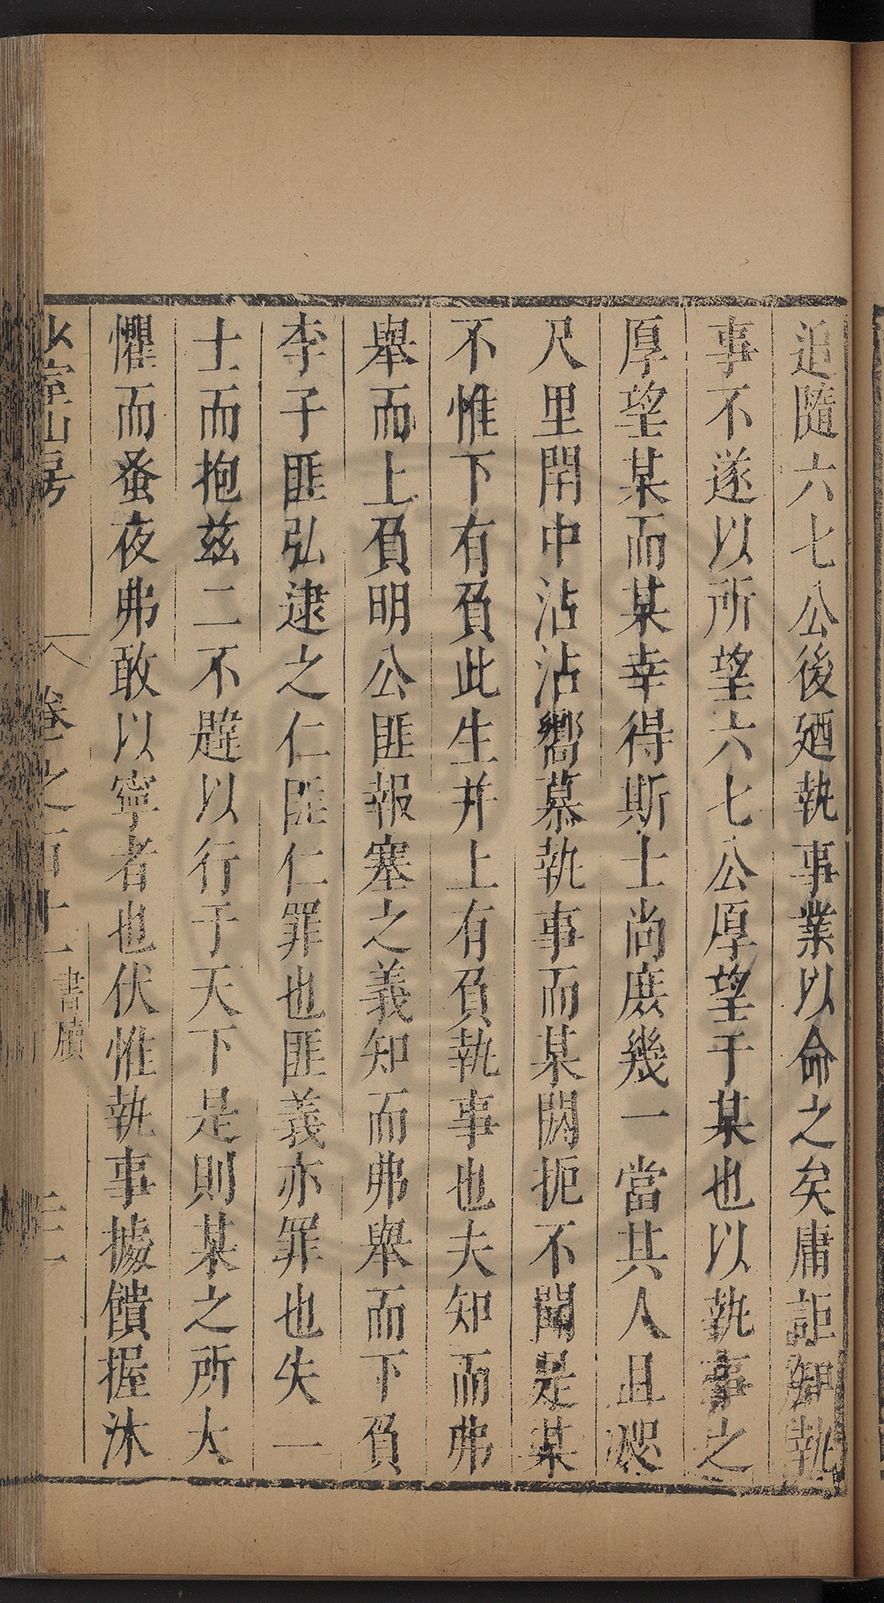 追隨六七公後廼執事業以命之矣庸詎知執
事不遂以所望六七公厚望于某也以執事之
厚望某而某幸得斯士尚庶幾一當其人且咫
尺里閈中沾沾嚮慕執事而某閼扼不聞是某
不惟下有負此生并上有負執事也夫知而弗
舉而上負明公匪報塞之義知而弗舉而下負
李子匪弘逮之仁匪仁罪也匪義亦罪也失一
士而抱兹二不韙以行于天下是則某之所大
懼而蚤夜弗敢以寧者也伏惟執事據饋握沐
少室山房 卷之百十一 書牘